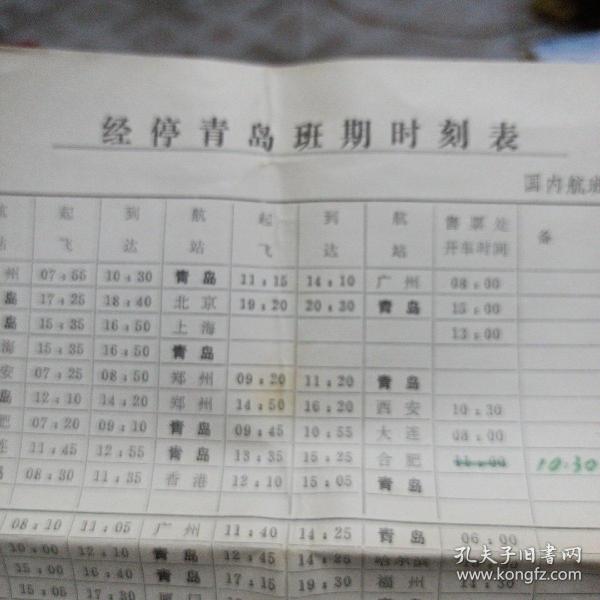 经停青岛班期时刻表
国内航班
航 起 到 航 起 到 航 售票处 备
站 飞 达 站 飞 达 站 开车时间
州 07:55 10:30 青岛 11:15 14:10 广州 08:00
岛 17:25 18:40 北京 19:20 20:30 青岛 15:00
岛 15:35 16:50 上海 13:00
海 15:35 16:50 青岛
安 07:25 08:50 郑州 09:20 11:20 青岛
岛 12:10 14:20 郑州 14:50 16:20 西安 10:30
肥 07:20 09:10 青岛 09:45 10:55 大连 08:00
连 11:45 12:55 青岛 13:35 15:25 合肥 11:00 10:30
岛 08:30 11:35 香港 12:10 15:05 青岛
08:10 11:05 广州 11:40 14:25 青岛 06:00
10:00 12:10 青岛 12:45 14:25 哈尔滨
15:00 16:40 青岛 17:15 19:30 福州 11:30
15:05 17:30 厦门 18:10
孔夫子旧书网
www.kongfz.com